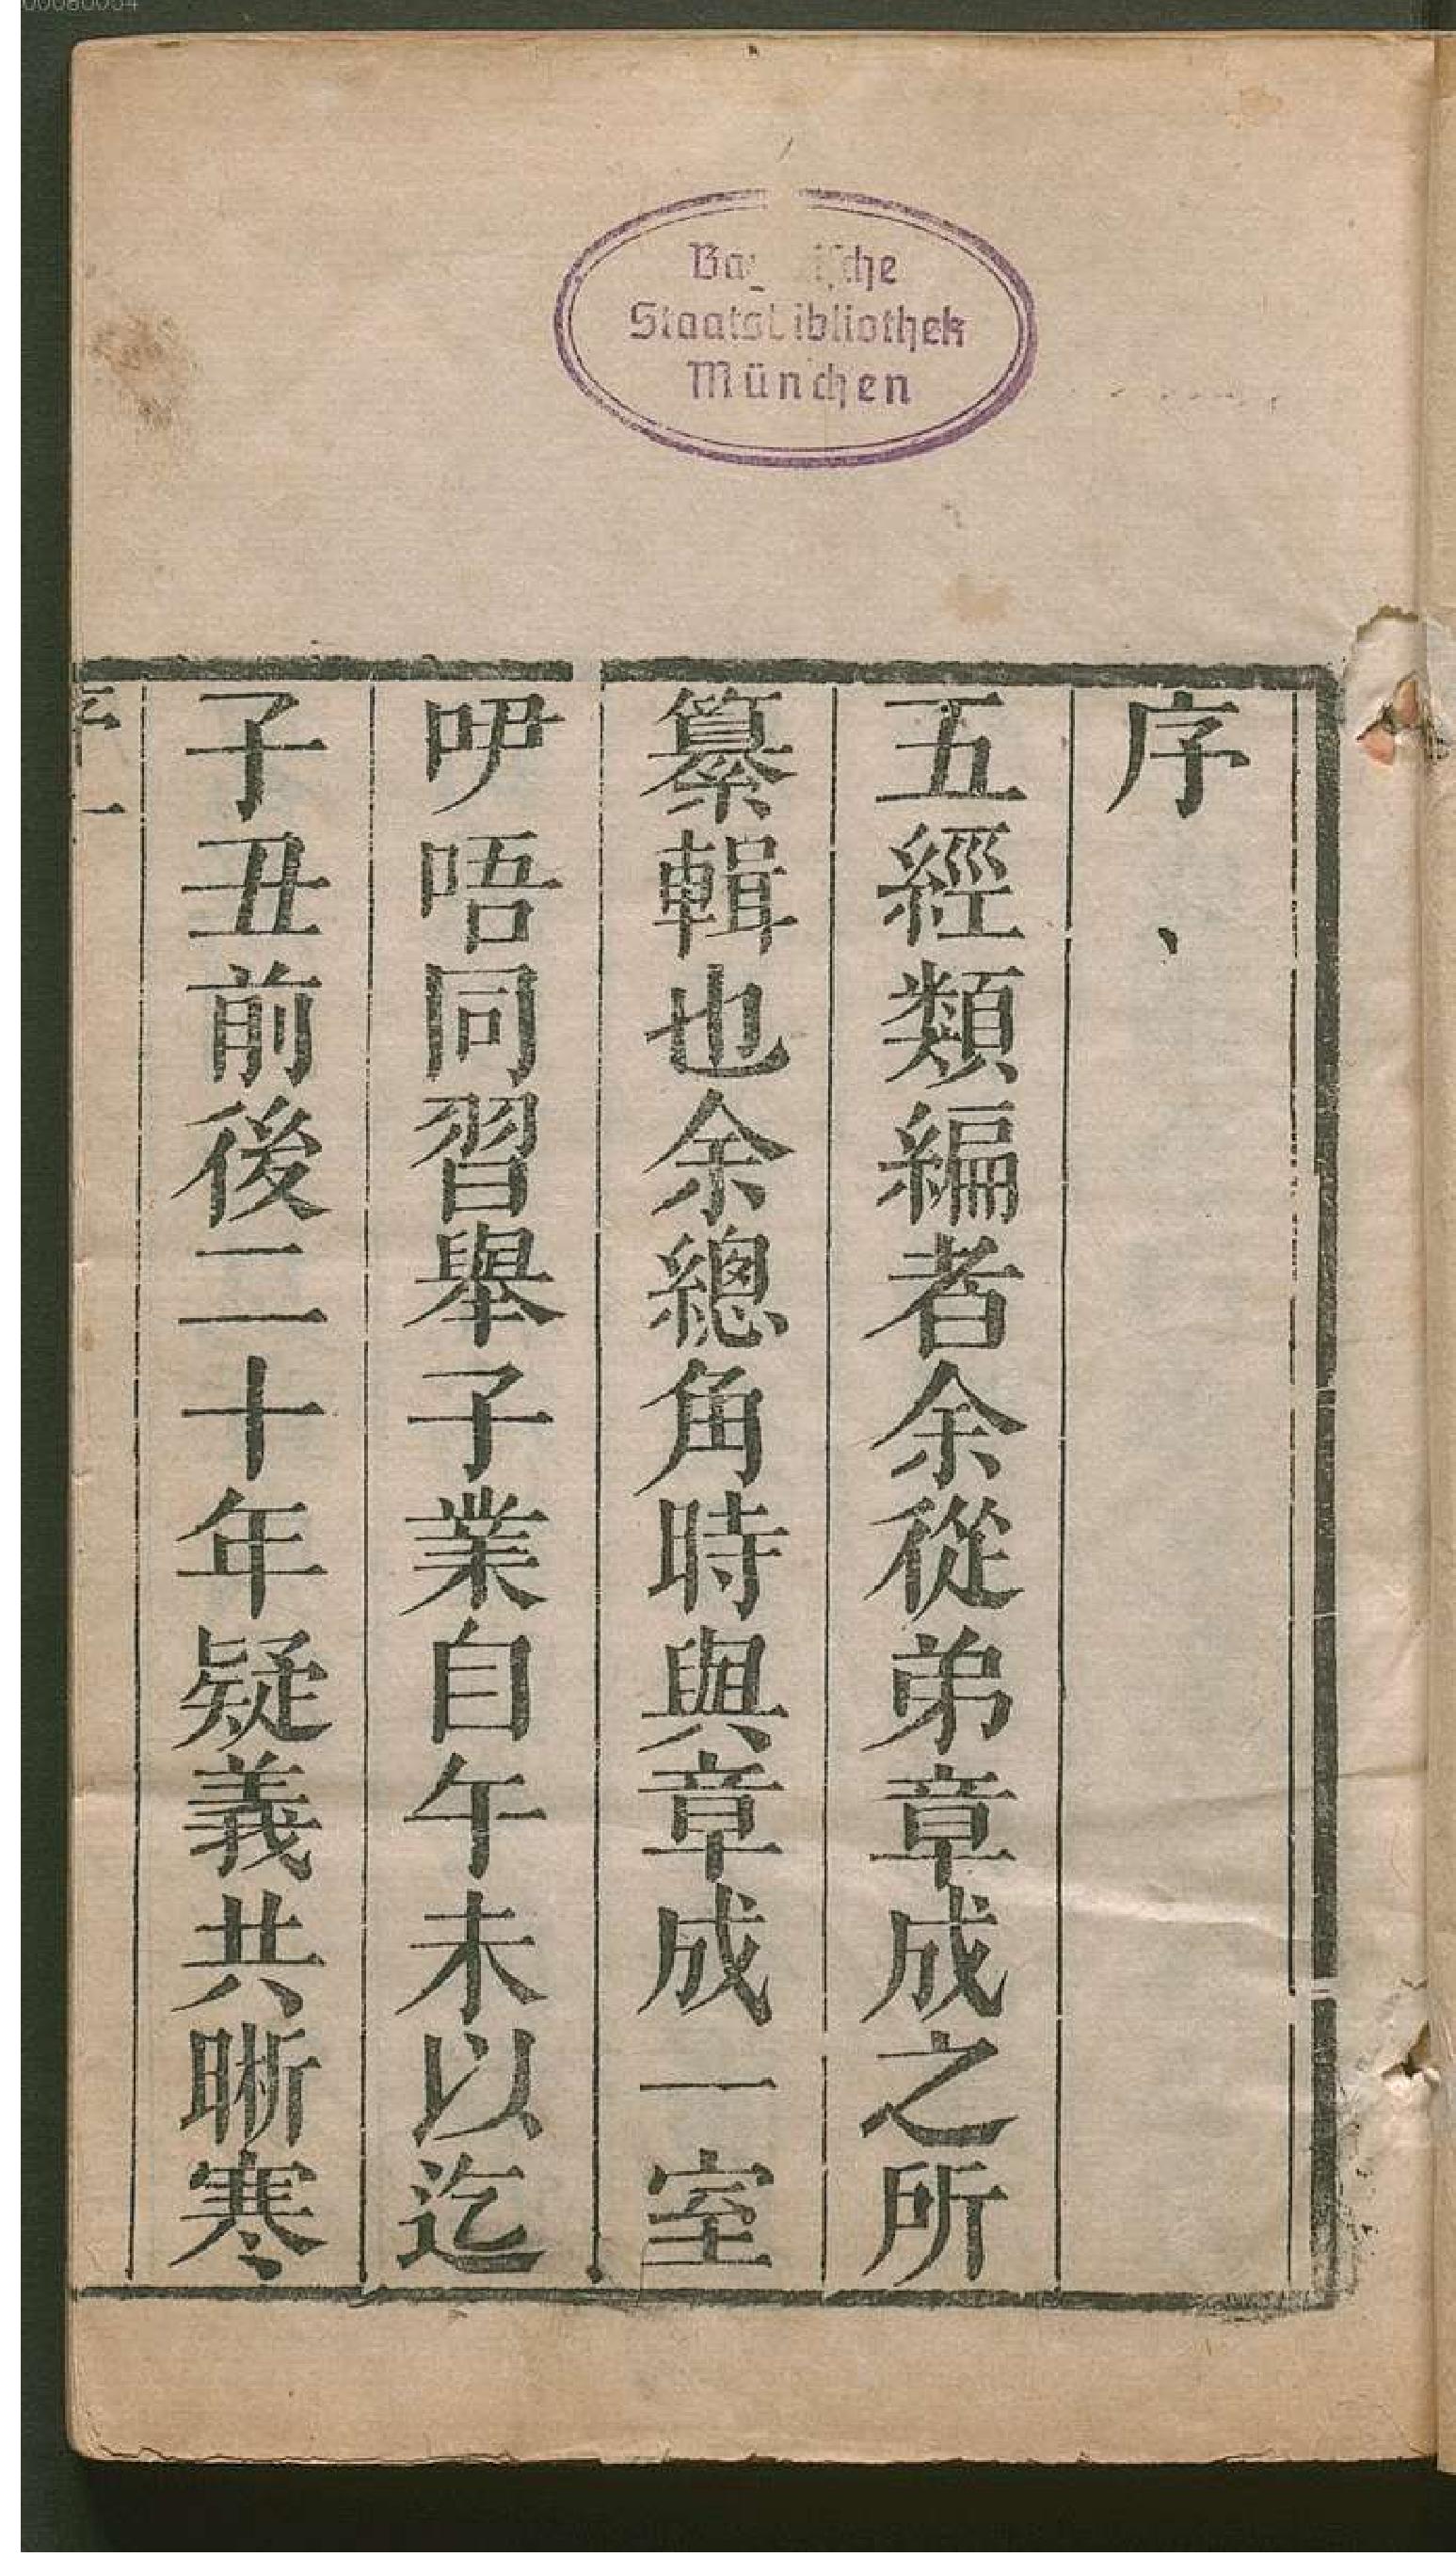 序
五經類編者余從弟章成之所
纂輯也余總角時與章成一室
咿唔同習舉子業自午未以迄
子丑前後二十年疑義共晰寒
序一
Staatsbibliothek
München